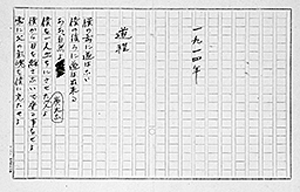 一九一四年
道程
僕の前に道はない
僕の後ろに道は出来る
ああ自然よ
父よ
廣大な
僕を一人立ちにさせた父よ
僕から目を離さないで守る事をせよ
常に父の気魄を僕に充たせよ